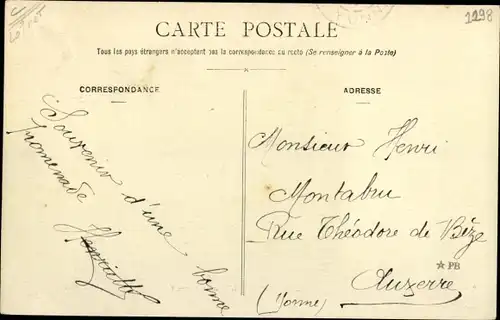 1298
Loiret
CARTE POSTALE
Tous les pays étrangers n'acceptent pas la correspondance au recto (Se renseigner à la Poste)
CORRESPONDANCE
Souvenir d'une bonne
promenade
Henriette
ADRESSE
Monsieur Henri
Montabru
Rue Théodore de Bèze
PB
Auxerre
(Yonne)